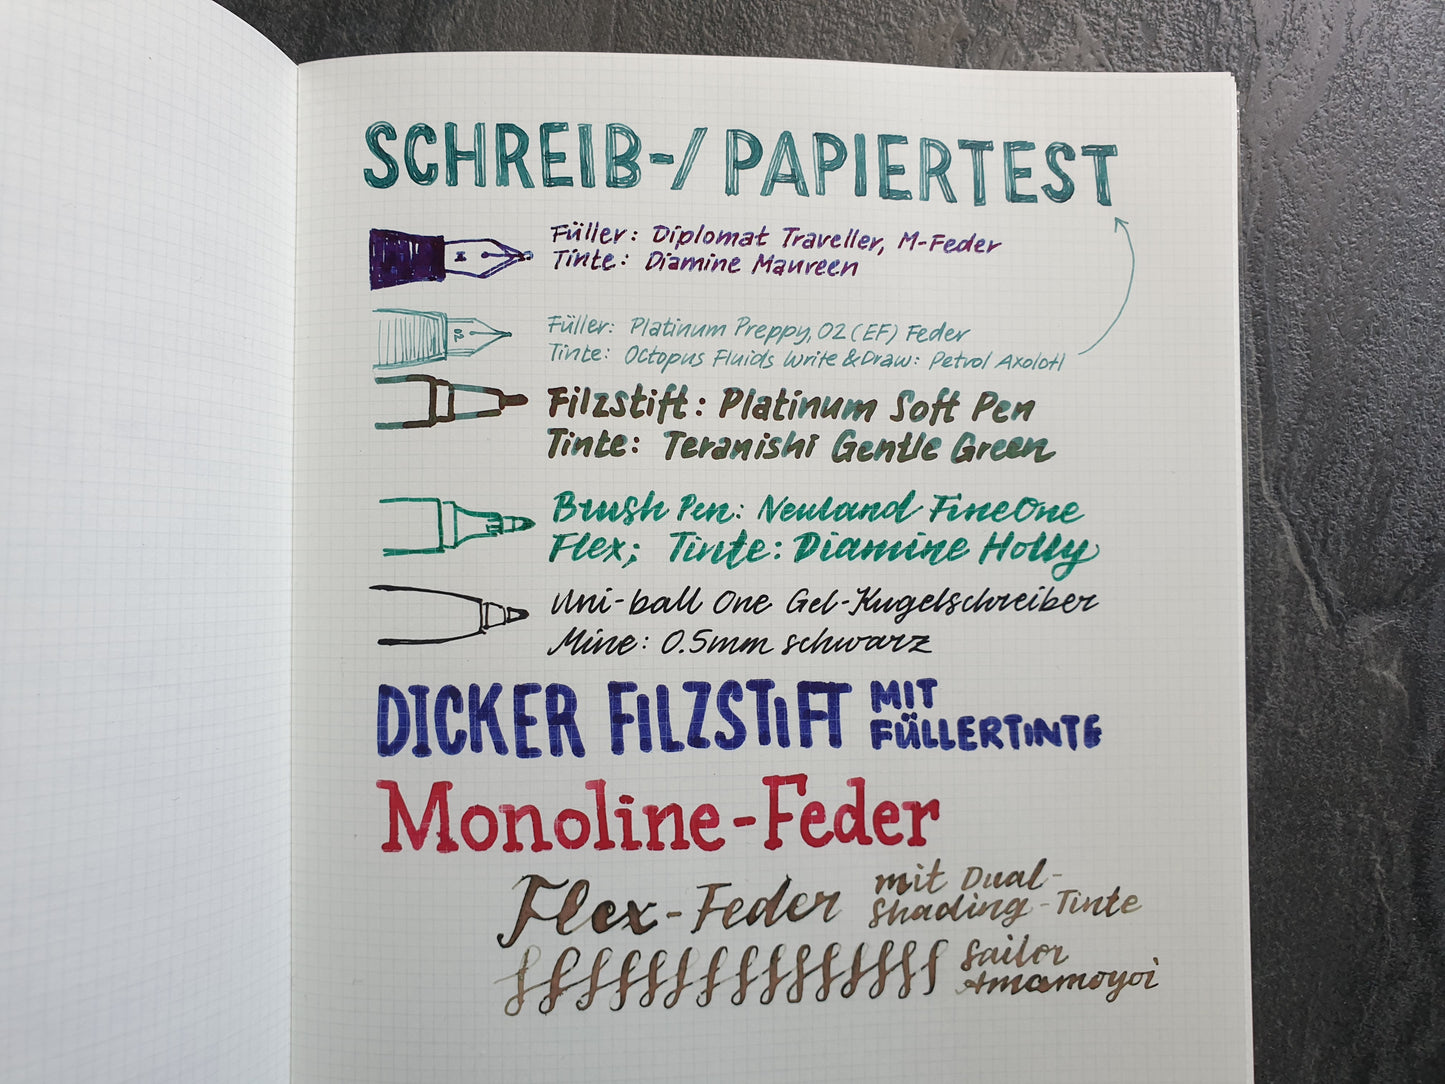 SCHREIB-/PAPIERTEST
Füller: Diplomat Traveller, M-Feder
Tinte: Diamine Maureen
Füller: Platinum Preppy, 02 (EF) Feder
Tinte: Octopus Fluids Write & Draw: Petrol Axolotl
Filzstift: Platinum Soft Pen
Tinte: Teranishi Gentle Green
Brush Pen: Neuland FineOne
Flex; Tinte: Diamine Holly
Uni-ball One Gel-Kugelschreiber
Mine: 0.5mm schwarz
DICKER FILZSTIFT MIT
FÜLLERTINTE
Monoline-Feder
Flex-Feder mit Dual-
Shading-Tinte
Sailor
Amamoyoi